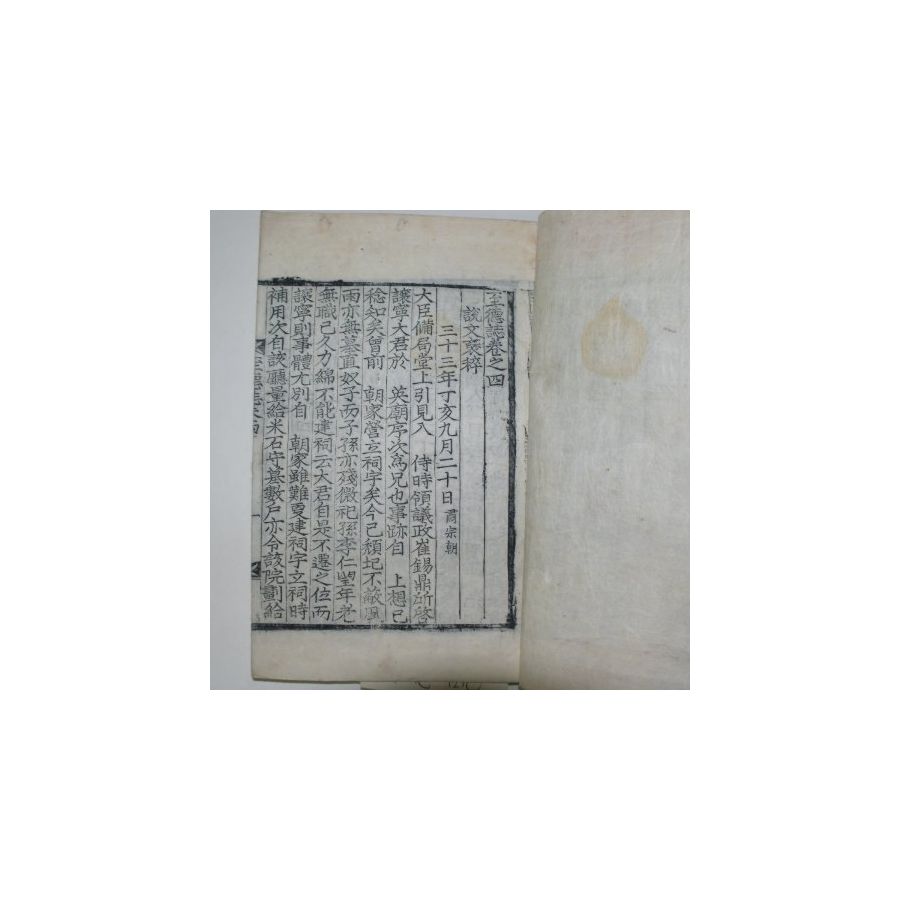 至德誌卷之四
說文襃粹
三十三年丁亥九月二十日 肅宗朝
大臣備局堂上引見入 侍時領議政崔錫鼎所啓
讓寧大君於 英廟序次爲兄也事跡自 上想已
稔知矣曾前 朝家營立祠宇矣今已頹圮不蔽風
雨亦無墓直奴子而子孫亦殘微祀孫李仁望年老
無職已久力綿不能建祠云大君自是不遷之位而
讓寧則事體尤別自 朝家雖難更建祠宇立祠時
補用次自該廳量給米石守墓數戶亦令該院劃給